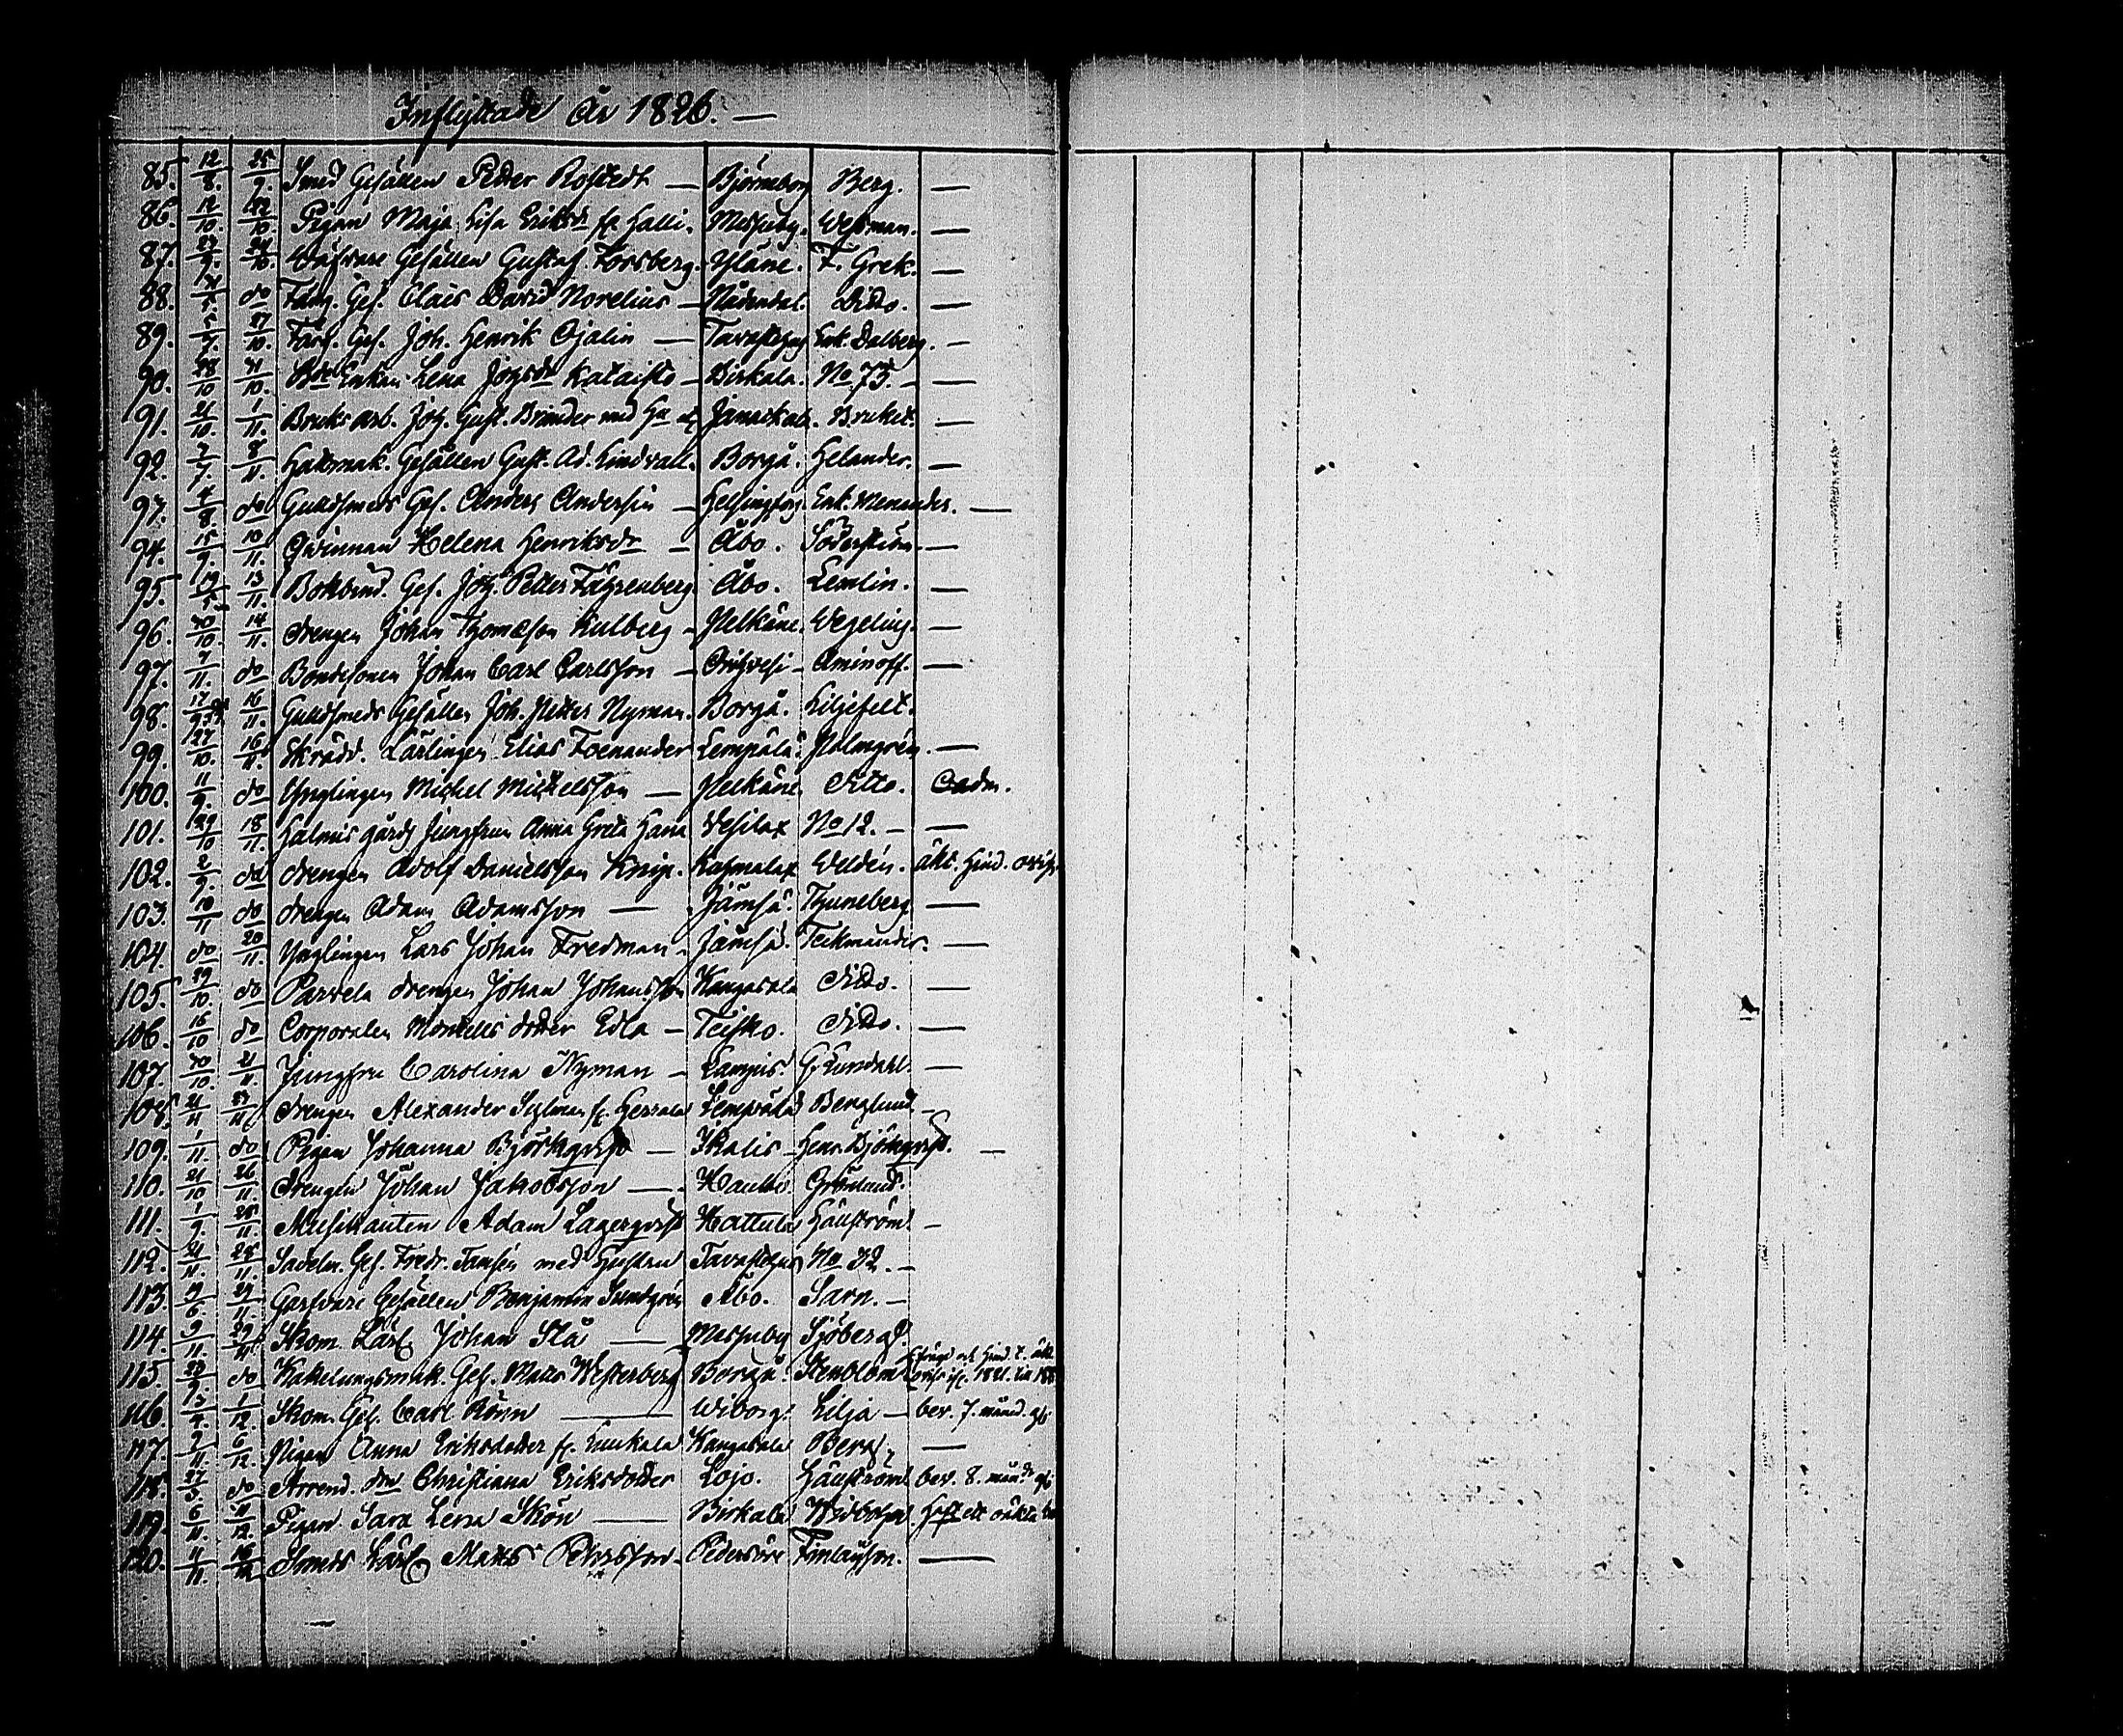 Inflyttade År 1826. —
85. 12/8. 25/9. Smed Gesällen Petter Rosstedt — Björneborg Berg. —
86. 12/10. 22/10 Pigan Maja Lisa Eriksdr fr. Halli. Messuby. Wessman. —
87. 27/9. 24/10 Gesällen Gustaf Forsberg. Yläne. F. Grek. —
88. do Färg. Ges. Claës David Norelius — Nådendal. Ditto. —
89. 5/7. 27/10. Färg. Ges. Joh. Henrik Ojalin — Tavastehus Enk. Dalberg. —
90. 28/10 31/10. Enkan Lena Johsdr Kataisto — Birkala. No 75. —
91. 21/10. 1/11. Bruks arb. Joh. Gust. Brander med Hu Bruket. —
92. 2/7. 8/11. Hattmak. Gesällen Gust. Ad. Lindvall. Borgå. Helander. —
97. 4/8. do Guldsmeds Ges. Anders Andersin — Helsingfors Enk. Menander. —
94. 15/9. 10/11. Qvinnan Helena Henriksdr — Åbo. Söderström. —
95. 19/5 13/11. Bokbind. Ges. Joh. Petter Fährenberg. Åbo. Lemlin. —
96. 30/10. 14/11. Drengen Johan Thomasson Kulberg — Pelkäne. Wegelius. —
97. 7/11. do Bondesonen Johan Carl Carlsson — Orihvesi — Aminoff. —
98. 17/9 16/11. Guldsmeds Gesällen Joh. Petter Nyman. Borgå. Liljefelt.
99. 27/10. 16/11. Skrädd. Lärlingen Elias Foenander Lempälä. Malmgrén. —
100. 11/9. do Ynglingen Michel Mickelsson — Pelkäne Ditto. Oadm.
101. 29/10 18/11. Halmis gårds Jungfrun Anna Greta Hana Vesilax No 12. — —
102. 2/9. do Drengen Adolf Danielsson Knip. Weldén. äkt. Hind.
103. 10/11 do Drengen Adam Adamsson — Jämsä. Thuneberg —
104. do 20/11. Ynglingen Lars Johan Fredman — Jämsä. Teckmander. —
105. 29/10. do Parvela drengen Johan Johansson Kangasala Ditto. —
106. 16/10 do Corporalen Monkells dotter Edla — Teisko. Ditto. —
107. 30/10. 21/11. Jungfru Carolina Nyman — Lampis. G. Lundahl. —
108. 21/11 23/11 Drengen Alexander fr. Herrala Lempälä Berglund —
109. 1/11. do Pigan Johanna Björkqvist — Ikalis — Henr. Björkqvist. —
110. 21/10 26/11. Drengen Johan Jakobsson — Hauho Grönlund.
111. 1/9. 28/11. Musikanten Adam Lagerqvist Hattula Häuström —
112. 21/11. 28/11. Sadelm. Ges. Fredr. Tamsén med Hustru Tavastehus No 32. —
113. 19/6. 29/11. Garfvare Gesällen Benjamin Sundgrén Åbo. Sarn. —
114. 9/11. 29/11. Skom. Lärl. Johan Stå — Messuby Sjöberg.
115 23/9. do Kakelungsmak. Ges. Matts Westerberg Borgå. Stenblom
116. 13/4. 1/12. Skom. Ges. Carl Rönn — Wiborg. Lilja — bev. 7. månad.
117. 9/11. 6/12. Pigan Anna Eriksdotter fr. Kangasala Berg. —
118. 27/3. do Arrend. dr Christiana Eriksdotter Lojo. Häuström bev. 8. mån.
119. 6/11. Pigan Sara Lena Skön — Birkala Haft ett oäkta
120. 11/11. Smeds Lärl. Matts Pehrsson — Pedersöre Finlayson. —